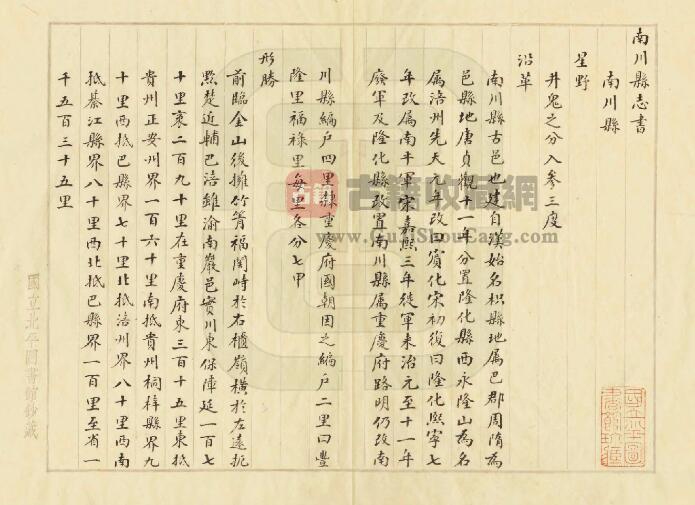 南川縣志書
南川縣
星野
井鬼之分入參三度
沿革
南川縣古邑也建自漢始名枳縣地屬巴郡周隋為
邑縣地唐貞觀十一年分置隆化縣西永隆山為名
属涪州先天元年改曰賓化宋初復曰隆化熙寧七
年改属南平軍宋嘉熙三年徙軍來治元至十一年
廢軍及隆化縣改置南川縣属重慶府路明仍改南
川縣編户四里隸重慶府國朝因之編户二里曰豐
隆里福祿里每里各分七甲
形勝
前臨金山後擁竹箐福関峙於右櫃嶺横於左遠扼
黔楚近輔巴涪雖渝南巖邑實川東保障延一百七
十里袤二百九十里在重慶府東三百十五里東抵
貴州正安州界一百六十里南抵貴州桐梓縣界九
十里西抵巴縣界七十里北抵涪州界八十里西南
抵綦江縣界八十里西北抵巴縣界一百里至省一
千五百三十五里
國立北平圖書館鈔藏
古籍收藏網
www.GuJiShouCang.com